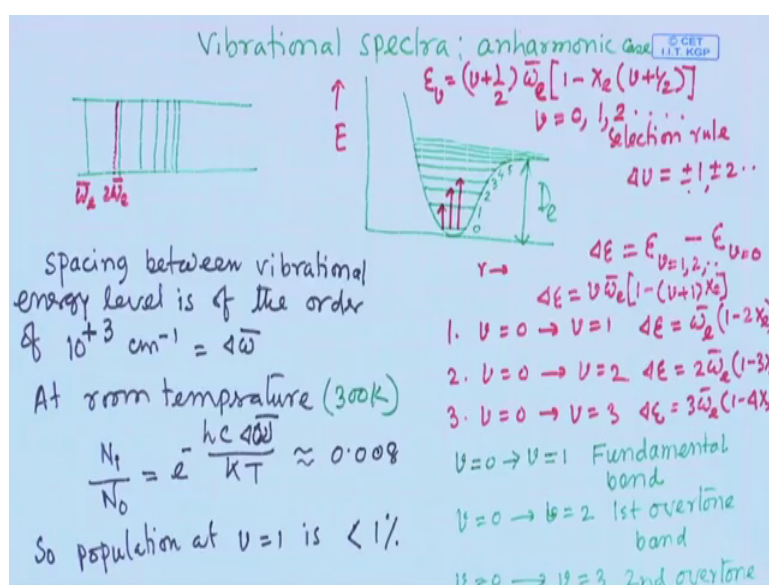 Vibrational spectra: anharmonic case
© CET
I.I.T. KGP
ε_υ = (υ+1/2) ω̄_e [1 - x_e (υ+1/2)]
υ = 0, 1, 2 .....
Selection rule
Δυ = ±1, ±2 ..
ω̄_e 2ω̄_e
E
0
1
2
3
4
5
D_e
r→
Δε = ε_υ=1,2,.. - ε_υ=0
Δε = υ ω̄_e [1 - (υ+1) x_e]
1. υ = 0 → υ = 1 Δε = ω̄_e (1-2x_e
2. υ = 0 → υ = 2 Δε = 2ω̄_e (1-3x
3. υ = 0 → υ = 3 Δε = 3ω̄_e (1-4x
υ=0 → υ=1 Fundamental
band
υ=0 → υ=2 1st overtone
band
υ=0 → υ=3 2nd overtone
Spacing between vibrational
energy level is of the order
of 10^+3 cm^-1 = Δω̄
At room temprature (300K)
N_1/N_0 = e^- hcΔω̄/KT ≈ 0.008
So population at υ=1 is < 1%.